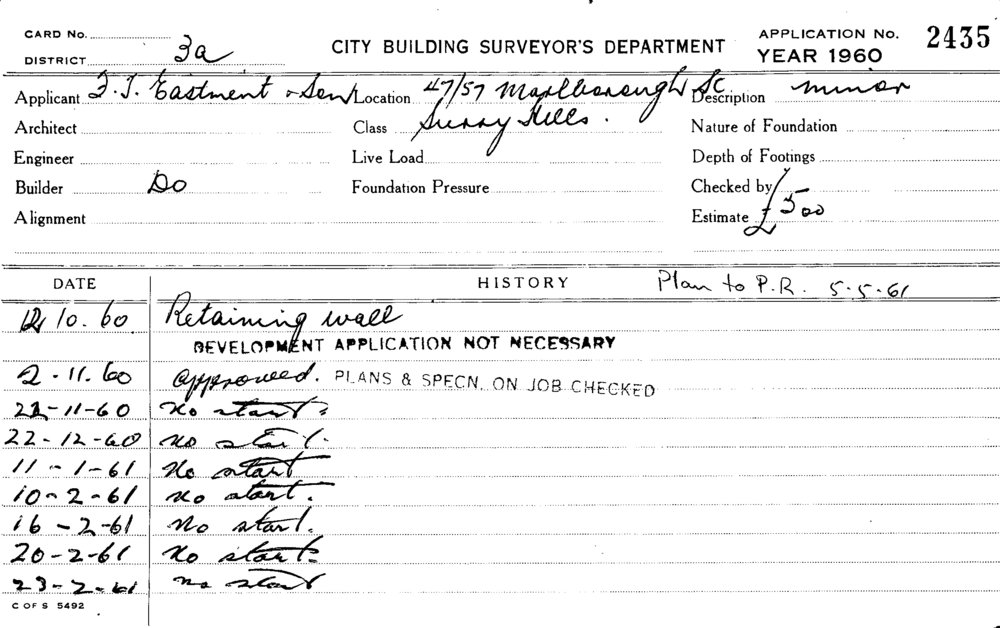 CARD No.
DISTRICT 3a
CITY BUILDING SURVEYOR'S DEPARTMENT
APPLICATION No. 2435
YEAR 1960
Applicant F. T. Eastment & Son Location 47/57 Marlborough St Description minor
Architect Class Surry Hills. Nature of Foundation
Engineer Live Load Depth of Footings
Builder Do Foundation Pressure Checked by
Alignment Estimate £500
DATE HISTORY Plan to P.R. 5-5-61
10.60 Retaining wall
DEVELOPMENT APPLICATION NOT NECESSARY
2-11.60 Approved. PLANS & SPECN. ON JOB CHECKED
22-11-60 No start.
22-12-60 No start.
11-1-61 No start
10-2-61 No start.
16-2-61 No start.
20-2-61 No start.
23-2-61 No start
C OF S 5492